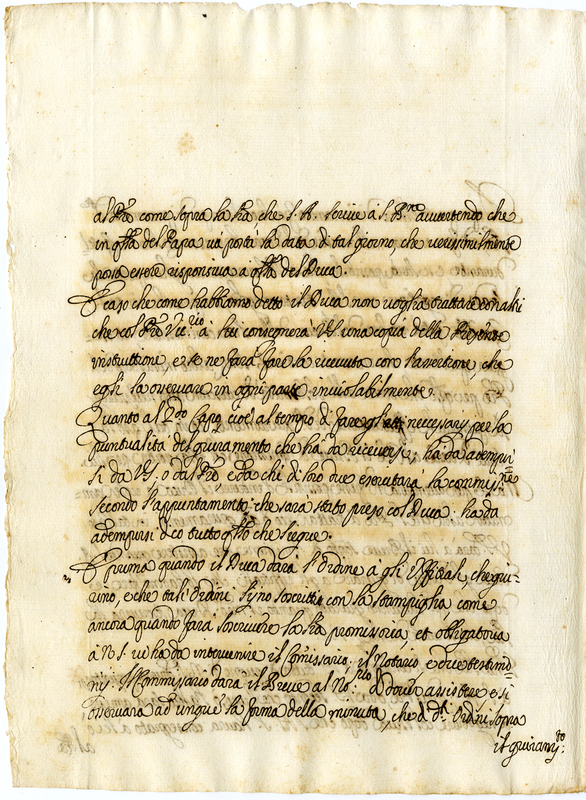 al Pre come sopra la Lra che S. A. scrive à S. B.ne avvertendo che
in qsta del Papa và posta la data di tal giorno, che verisimilmente
possa essere risponsiva a qsta del Duca.
E caso che come habbiamo detto il Duca non voglia trattare con altri
che col Pre Vic.rio à lui consegnerà VS. una copia della presente
instruttione, e se ne farà fare la ricevuta con l'assertione, che
egli la osservarà in ogni parte inviolabilmente.
Quanto al 2.do Capo cioè al tempo di fare gli atti necessarij per la
puntualità del giuramento che hà da riceversi; hà da adempir-
si da VS. o dal Pre, e da chi di loro due esecutarà la commiss.ne
secondo l'appuntamento che sarà stato preso col Duca: ha da
adempirsi dico tutto qsto che siegue.
E prima quando il Duca darà l'ordine a gli Officiali, che giu-
rino, e che tali ordini sijno scritti con la stampiglia, come
ancora quando farà scrivere la Lra promissoria, et obligatoria
a N. S. ve ha da intervenire il Comissario, il Notario e due testimo-
nij. Il Commissario darà il Breve al No.rio d dovrà assistere e si
osservarà ad unguê la forma della minuta, che d. di Ordini sopra
il giuram.to